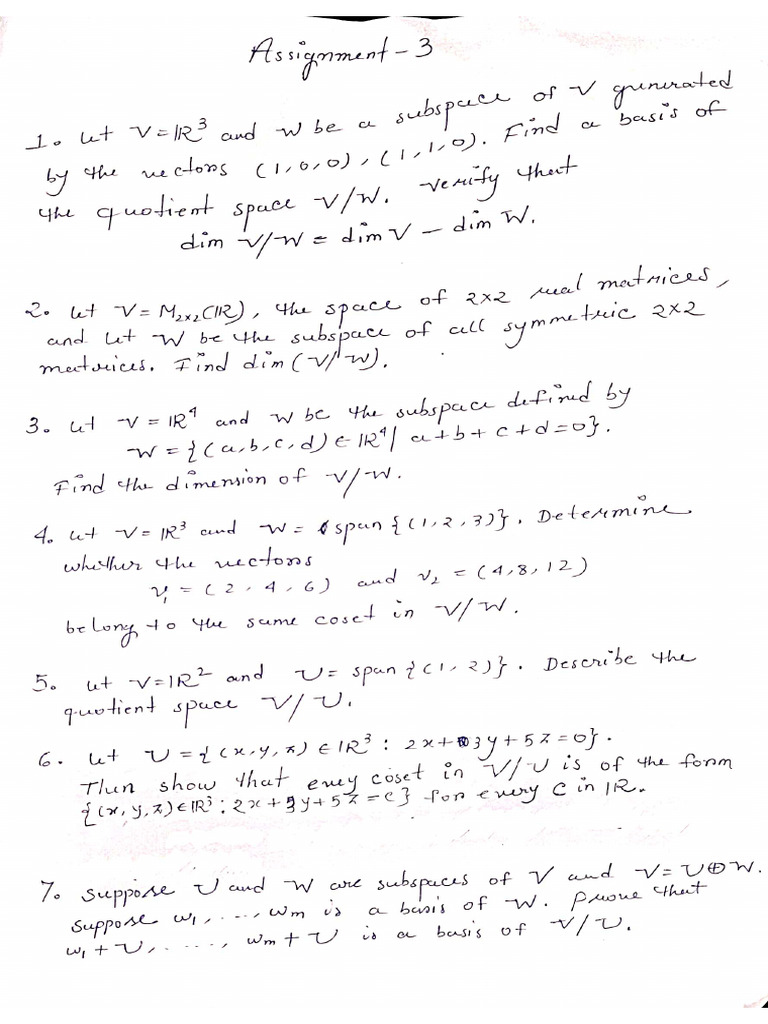 Assignment-3
1. Let V=ℝ³ and W be a subspace of V generated
by the vectors (1,0,0), (1,1,0). Find a basis of
the quotient space V/W. Verify that
dim V/W = dim V - dim W.
2. Let V = M₂ₓ₂(ℝ), the space of 2×2 real matrices,
and let W be the subspace of all symmetric 2×2
matrices. Find dim(V/W).
3. Let V = ℝ⁴ and W be the subspace defined by
W = {(a,b,c,d) ∈ ℝ⁴ | a+b+c+d=0}.
Find the dimension of V/W.
4. Let V = ℝ³ and W = span{(1,2,3)}. Determine
whether the vectors
v₁ = (2,4,6) and v₂ = (4,8,12)
belong to the same coset in V/W.
5. Let V=ℝ² and U = span{(1,2)}. Describe the
quotient space V/U.
6. Let U = {(x,y,z) ∈ ℝ³ : 2x+3y+5z=0}.
Then show that every coset in V/U is of the form
{(x,y,z)∈ℝ³ : 2x+3y+5z=c} for every c in ℝ.
7. Suppose U and W are subspaces of V and V=U⊕W.
Suppose w₁, ..., wm is a basis of W. Prove that
w₁+U, ....., wm+U is a basis of V/U.